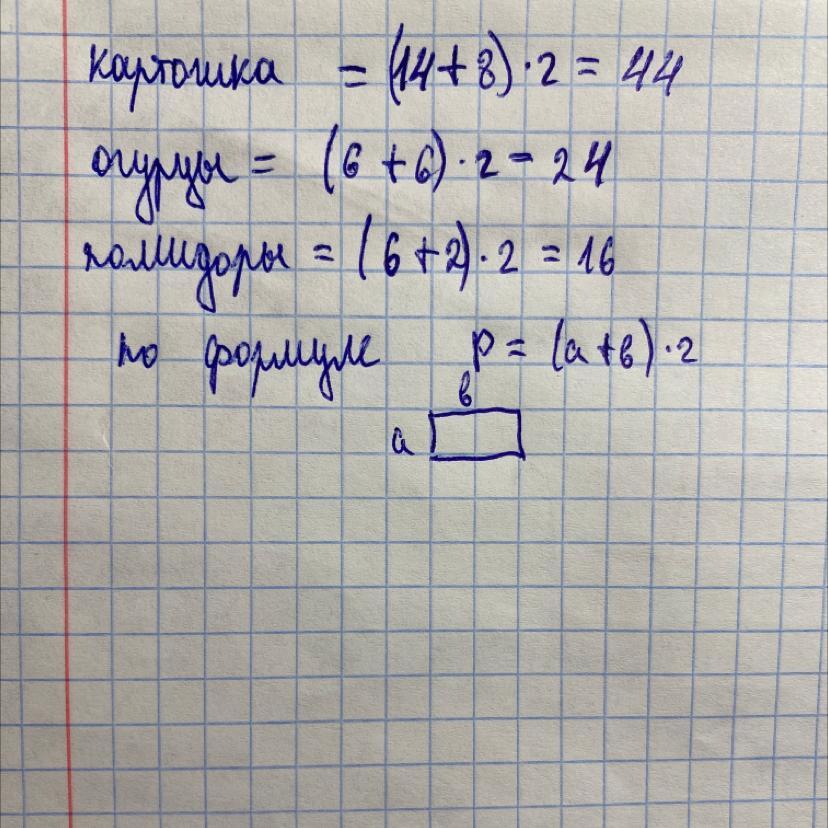 картошка = (14+8)·2 = 44
огурцы = (6+6)·2 = 24
помидоры = (6+2)·2 = 16
по формуле P = (a+b)·2
b
a